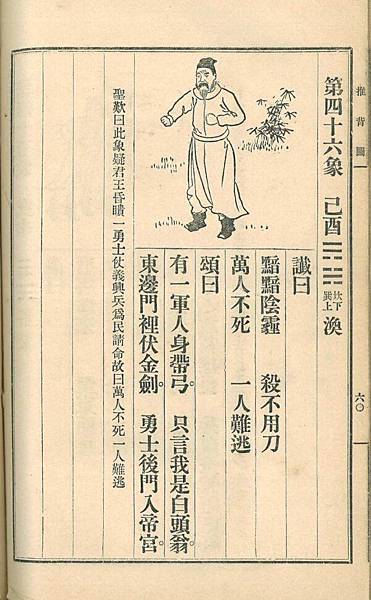 推背圖
六〇
第四十六象 己酉 ䷺ 坎下 巽上 渙
讖曰
黯黯陰霾 殺不用刀
萬人不死 一人難逃
頌曰
有一軍人身帶弓。 只言我是白頭翁。
東邊門裡伏金劍。 勇士後門入帝宮。
聖歎曰此象疑君王昏瞶一勇士仗義興兵爲民請命故曰萬人不死一人難逃